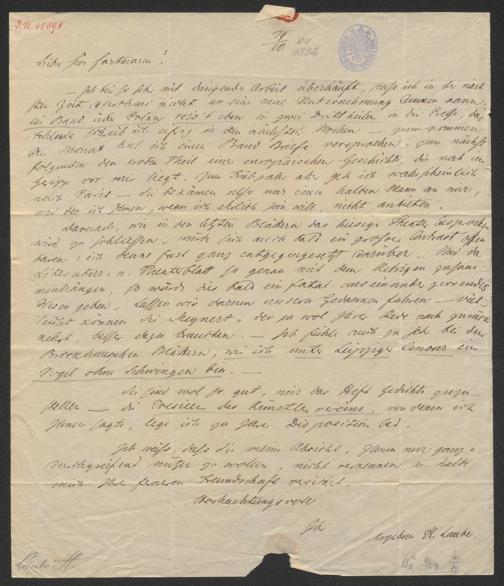 I.N. 45098
1832
Lieber Herr
Ich bin so sehr mit dringender Arbeit überhäuft, daß ich in der näch-
sten Zeit nicht an eine neue Unternehmung denken kann,
ein Band über Polen ist eben in zwei Dritteilen in der Presse, das
fehlende Drittheil ich in den nächsten Wochen — zum
Monat hab ich einen Band Briefe versprochen, zum nächst
folgenden den ersten Theil einer europäischen Geschichte, die noch im
vor mir liegt. Zum Frühjahr aber geh ich wahrscheinlich
nach Paris — Sie bekämen also nur einen halben Mann an mir,
und den ich Ihnen, wenn ich ehrlich sein will, nicht anbieten.
wie in den letzten Blättern das hiesige Theater besprochen
wird zu schließen, würde sich auch bald ein großer Contrast offen
baren: ich denke fast ganz entgegengesetzt darüber. Und da
u. Theaterblatt so genau mit dem Übrigen zusam-
menhängen, so würde dies bald ein fatal auseinander zerrendes
Wesen geben. Lassen wir darum unsern Gedanken fahren — viel-
leicht können Sie der ja wol Ihrer Rede nach zurück
kehrt, besser dazu brauchen. — Ich fühle auch so sehr bei den
Brockhausschen Blättern, wie ich unter Leipziger Censur ein
Vogel ohne Schwingen bin. —
Sie sind wol so gut, mir das Heft Gedichte zuzu-
stellen — die Poesieen des Künstlervereins, von denen ich
Ihnen sagte, lege ich zu Ihrer Disposition bei.
Ich weiß, daß Sie meine Absicht, Ihnen nur ganz u.
durchgreifend nützen zu wollen, nicht verkennen u. halte
mich Ihrer ferneren Freundschaft versichert.
Hochachtungsvoll
Ihr
ergebner H. Laube.
Laube H.